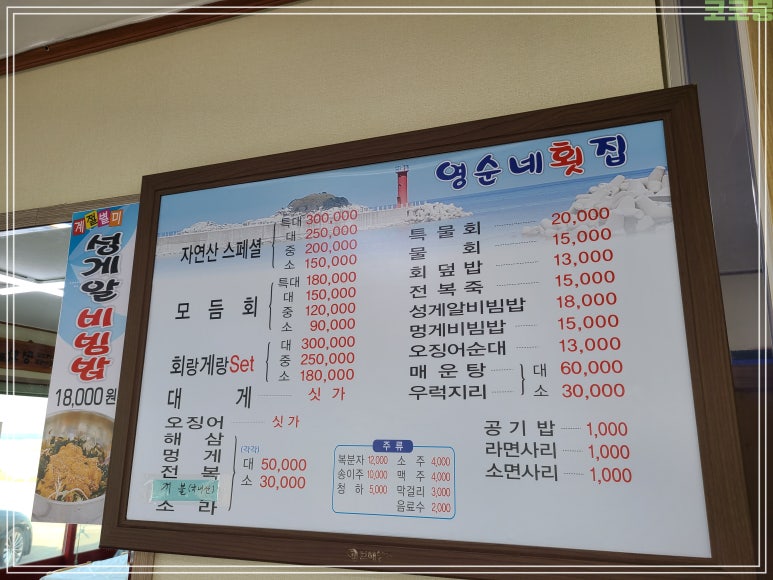 코코몽
영순네횟집
계절별미
성게알 비빔밥
18,000원
자연산 스페셜
특대 300,000
대 250,000
중 200,000
소 150,000
모듬회
특대 180,000
대 150,000
중 120,000
소 90,000
회랑게랑Set
대 300,000
중 250,000
소 180,000
대게 싯가
오징어 싯가
해삼
멍게
전복
개불(국내산)
소라
(각각)
대 50,000
소 30,000
특물회 20,000
물회 15,000
회덮밥 13,000
전복죽 15,000
성게알비빔밥 18,000
멍게비빔밥 15,000
오징어순대 13,000
매운탕 대 60,000
우럭지리 소 30,000
공기밥 1,000
라면사리 1,000
소면사리 1,000
주류
복분자 12,000 소주 4,000
송이주 10,000 맥주 4,000
청하 5,000 막걸리 3,000
음료수 2,000